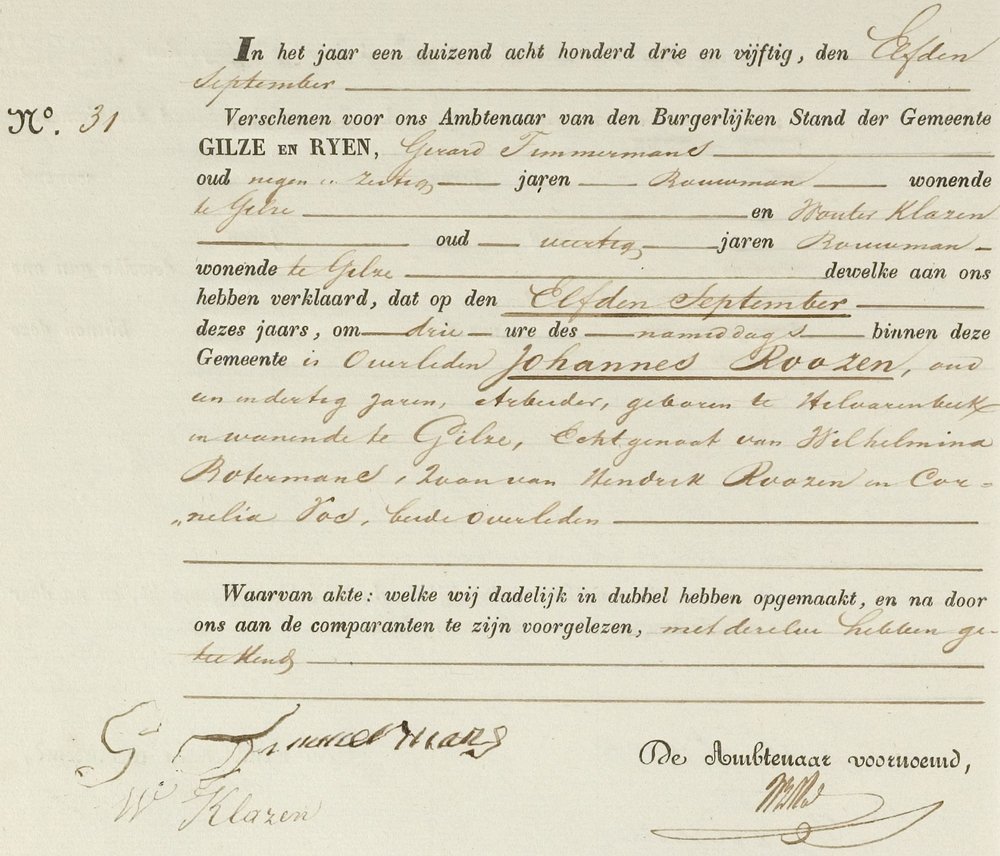 In het jaar een duizend acht honderd drie en vijftig, den Elfden
September
No. 31
Verschenen voor ons Ambtenaar van den Burgerlijken Stand der Gemeente
GILZE EN RYEN, Gerard Timmermans
oud negen en zestig jaren Bouwman wonende
te Gilze en Wouter Klazen
oud veertig jaren Bouwman
wonende te Gilze dewelke aan ons
hebben verklaard, dat op den Elfden September
dezes jaars, om drie ure des namiddags binnen deze
Gemeente is Overleden Johannes Roozen, oud
een en dertig Jaren, Arbeider, geboren te Hilvarenbeek
en wonende te Gilze, Echtgenoot van Wilhelmina
Botermans, Zoon van Hendrik Roozen en Cor=
„nelia Vos, beide overleden
Waarvan akte: welke wij dadelijk in dubbel hebben opgemaakt, en na door
ons aan de comparanten te zijn voorgelezen, met dezelve hebben ge-
teekend
G Timmermans
W Klazen
De Ambtenaar voornoemd,